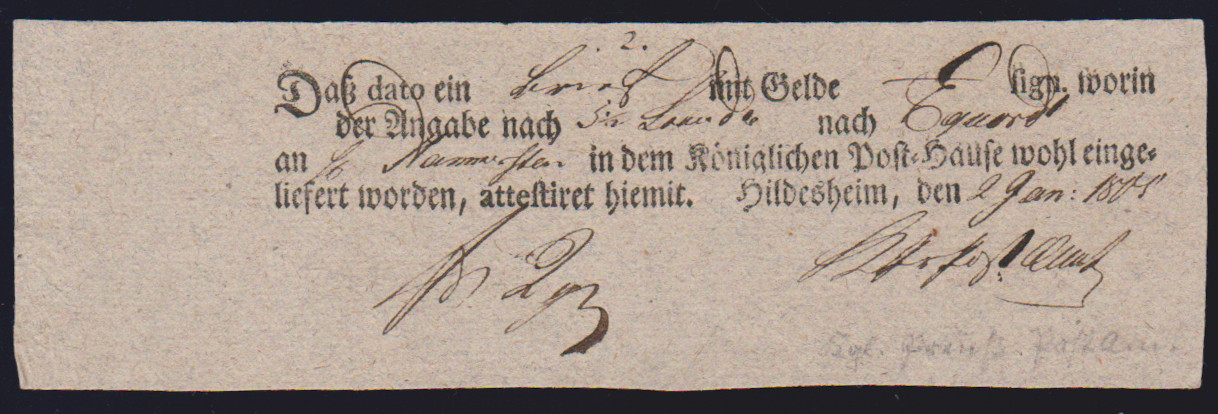 2.
Daß dato ein Brief mit Gelde sign. worin
der Angabe nach nach Equord
an in dem Königlichen Post-Hause wohl einge-
liefert worden, attestiret hiemit. Hildesheim, den 2 Jan: 1805
Kgl. Preuß. Postam.